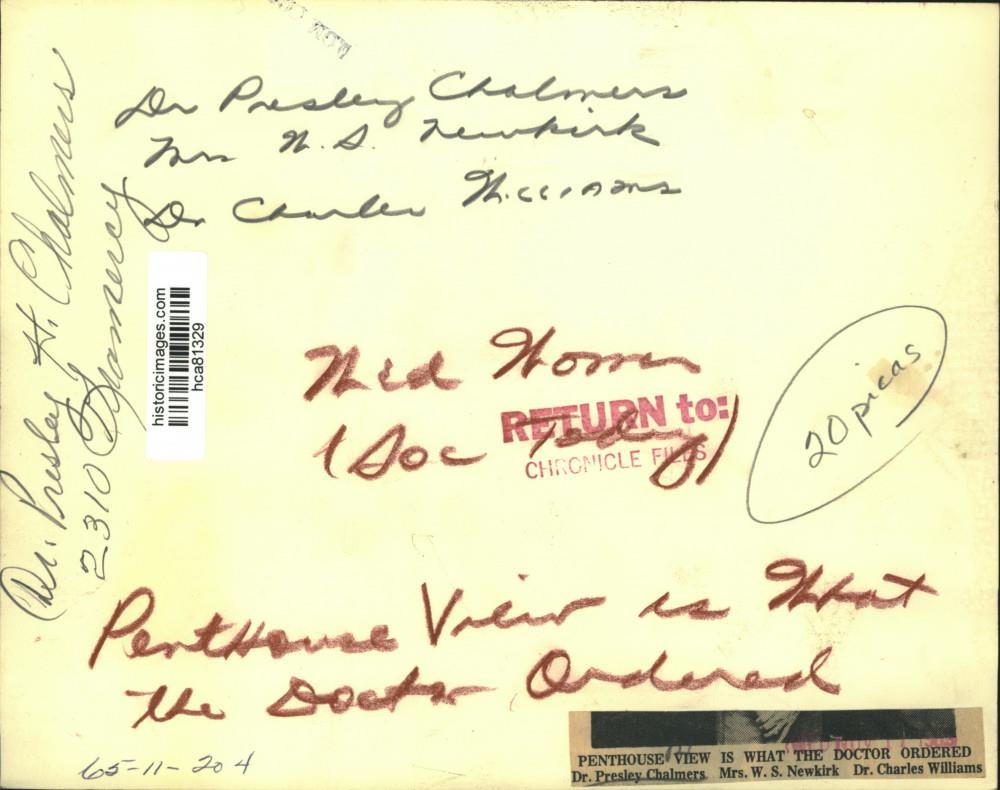 Dr Presley Chalmers
Mrs W. S. Newkirk
Dr Charles Williams
Dr. Presley H. Chalmers
2310 Gramercy
historicimages.com
hca81329
Wed Women
(Soc Today)
RETURN to:
CHRONICLE FILES
20 picas
PentHouse View is What
the Doctor Ordered
65-11-204
WED NOV 17
PENTHOUSE VIEW IS WHAT THE DOCTOR ORDERED
Dr. Presley Chalmers Mrs. W. S. Newkirk Dr. Charles Williams